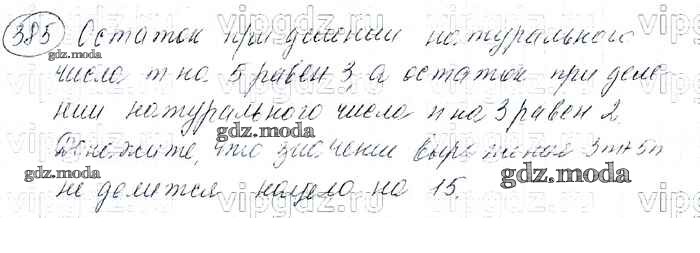 385 Остаток при делении натурального
числа m на 5 равен 3, а остаток при деле-
нии натурального числа n на 3 равен 2.
Докажите, что значении выражения 3m+5n
не делится нацело на 15.
gdz.moda
gdz.moda
gdz.moda
gdz.moda
vipgdz.com
vipgdz.com
vipgdz.com